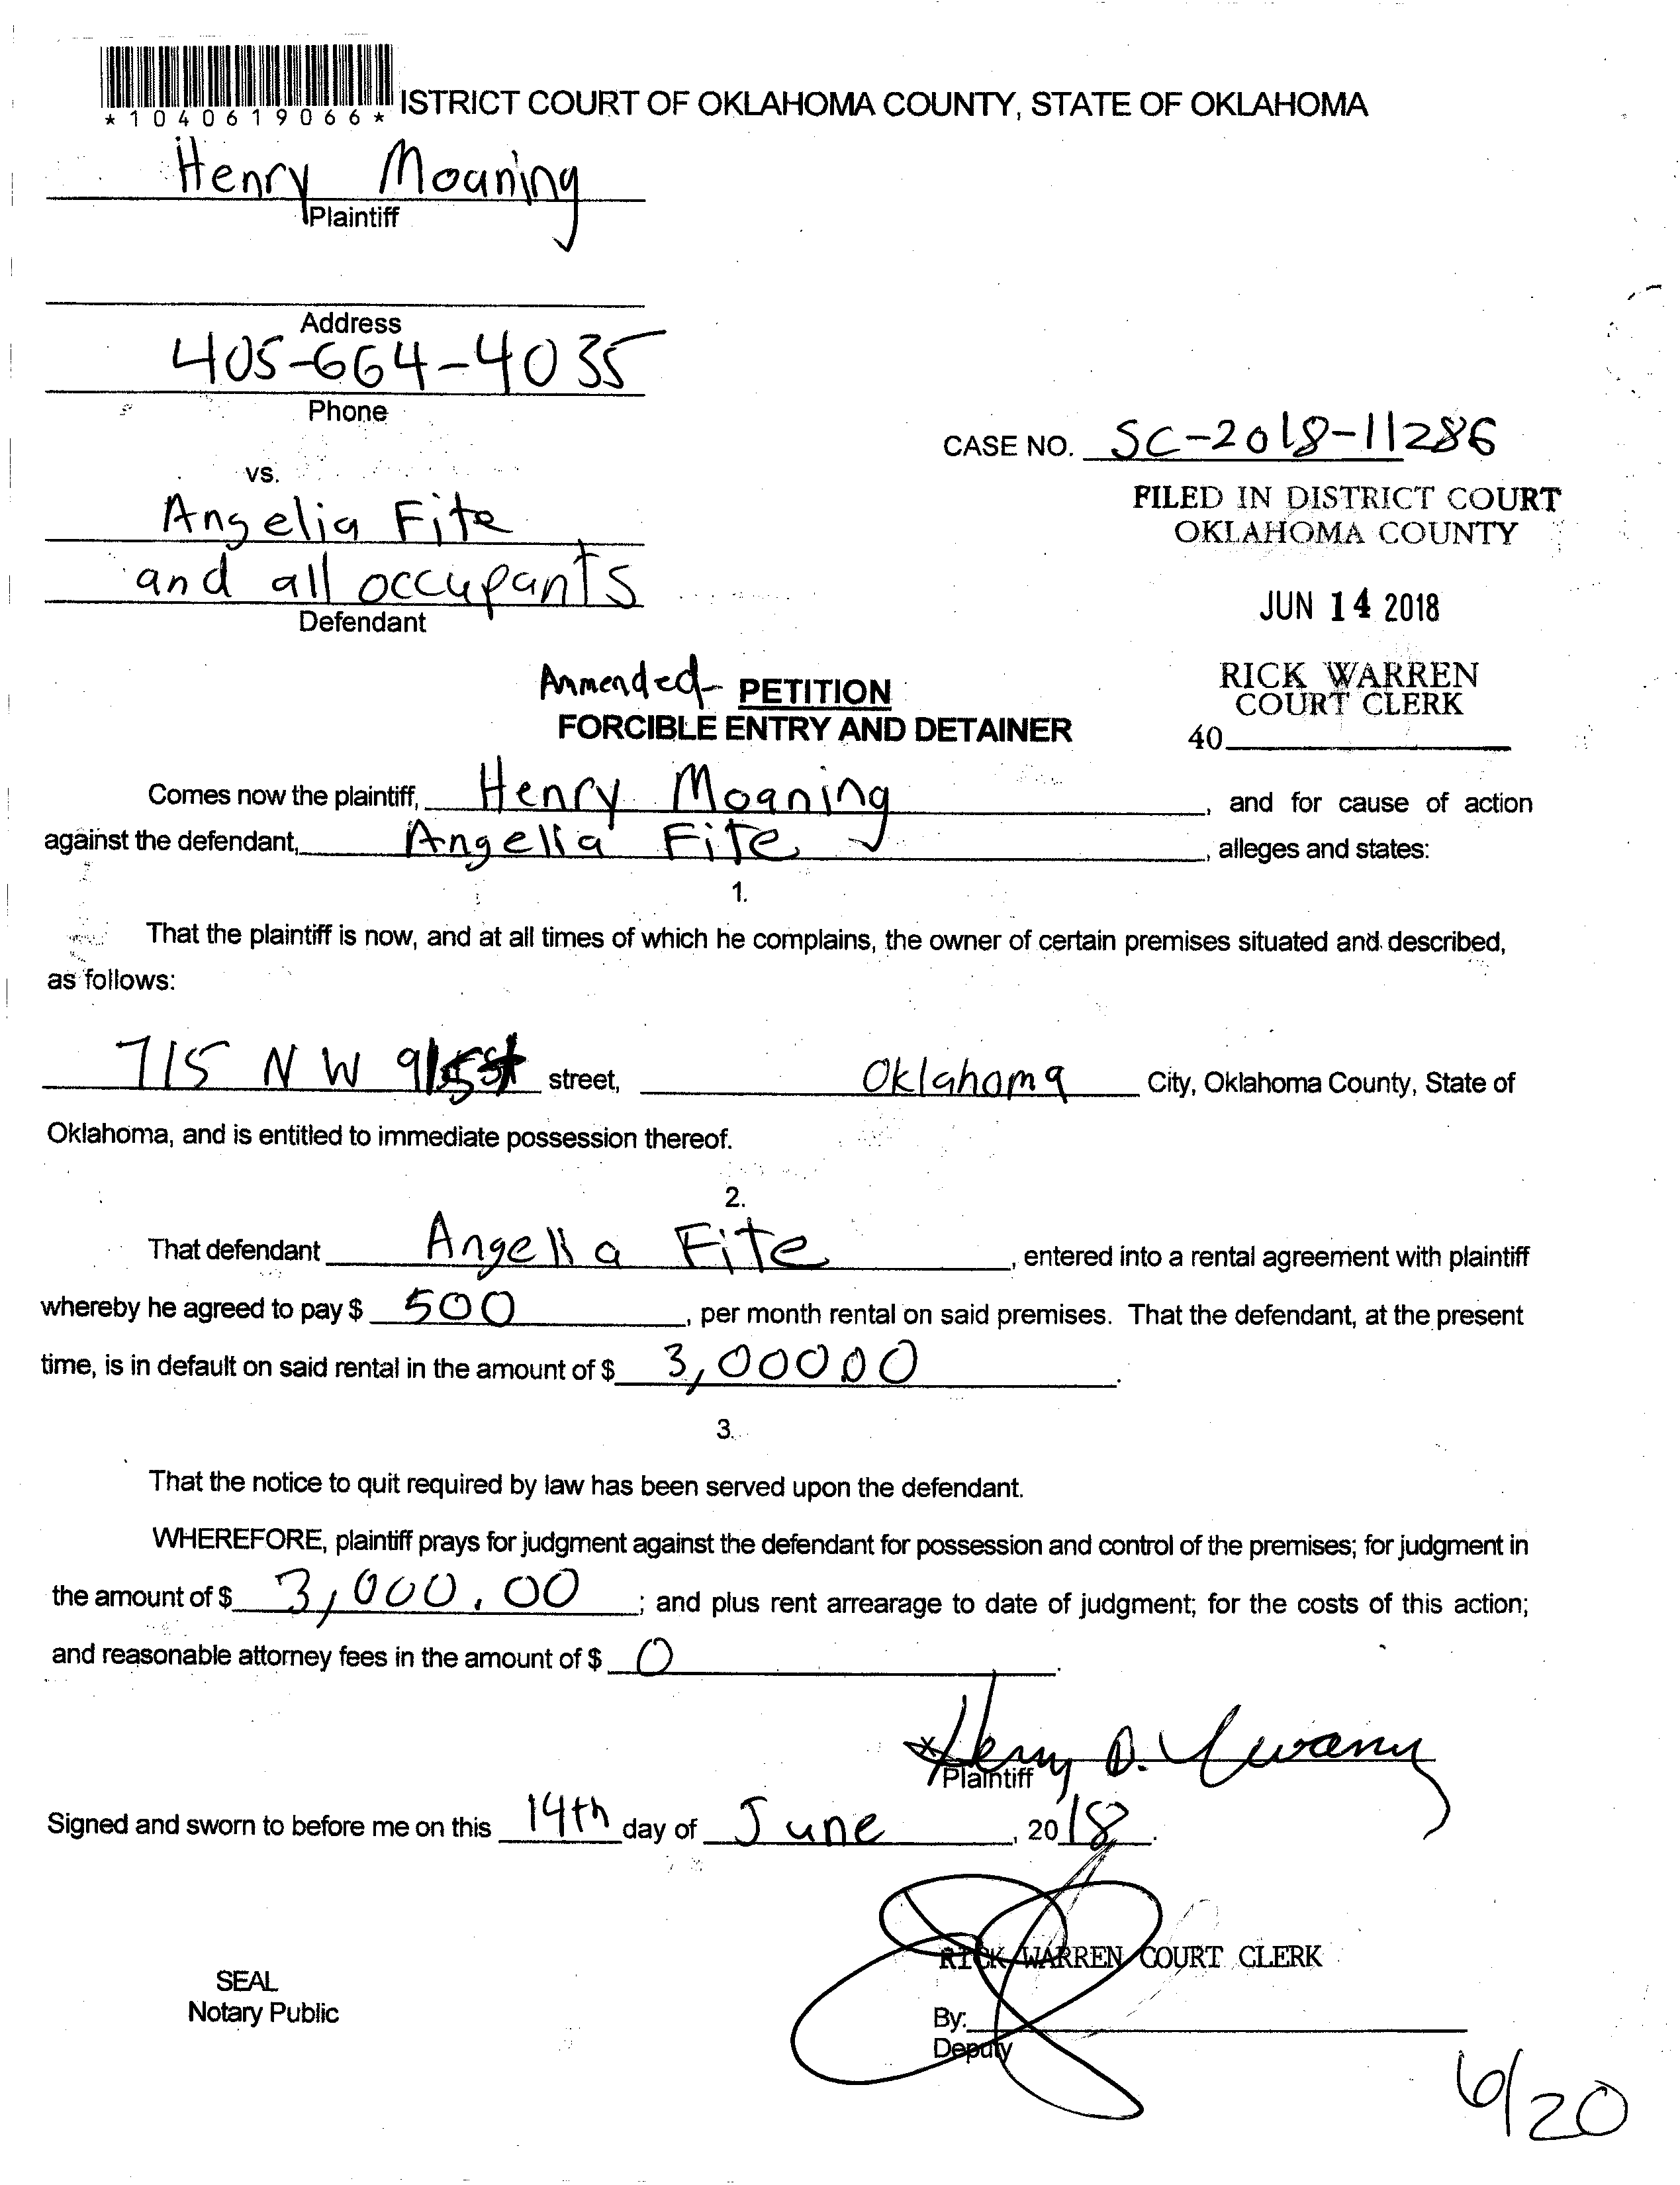 *1040619066*
ISTRICT COURT OF OKLAHOMA COUNTY, STATE OF OKLAHOMA
Henry Moaning
Plaintiff
Address
405-664-4035
Phone
CASE NO. SC-2018-11286
vs.
FILED IN DISTRICT COURT
OKLAHOMA COUNTY
Angelia Fite
and all occupants
Defendant
JUN 14 2018
RICK WARREN
COURT CLERK
40
Ammended- PETITION
FORCIBLE ENTRY AND DETAINER
Comes now the plaintiff, Henry Moaning, and for cause of action
against the defendant, Angelia Fite, alleges and states:
1.
That the plaintiff is now, and at all times of which he complains, the owner of certain premises situated and described,
as follows:
715 NW street, Oklahoma City, Oklahoma County, State of
Oklahoma, and is entitled to immediate possession thereof.
2.
That defendant Angelia Fite, entered into a rental agreement with plaintiff
whereby he agreed to pay $ 500, per month rental on said premises. That the defendant, at the present
time, is in default on said rental in the amount of $ 3,00000.
3.
That the notice to quit required by law has been served upon the defendant.
WHEREFORE, plaintiff prays for judgment against the defendant for possession and control of the premises; for judgment in
the amount of $ 3,000.00; and plus rent arrearage to date of judgment; for the costs of this action;
and reasonable attorney fees in the amount of $ 0.
Henry D.
Plaintiff
Signed and sworn to before me on this 14th day of June, 2018.
RICK WARREN COURT CLERK
SEAL
Notary Public
By:
Deputy
6/20